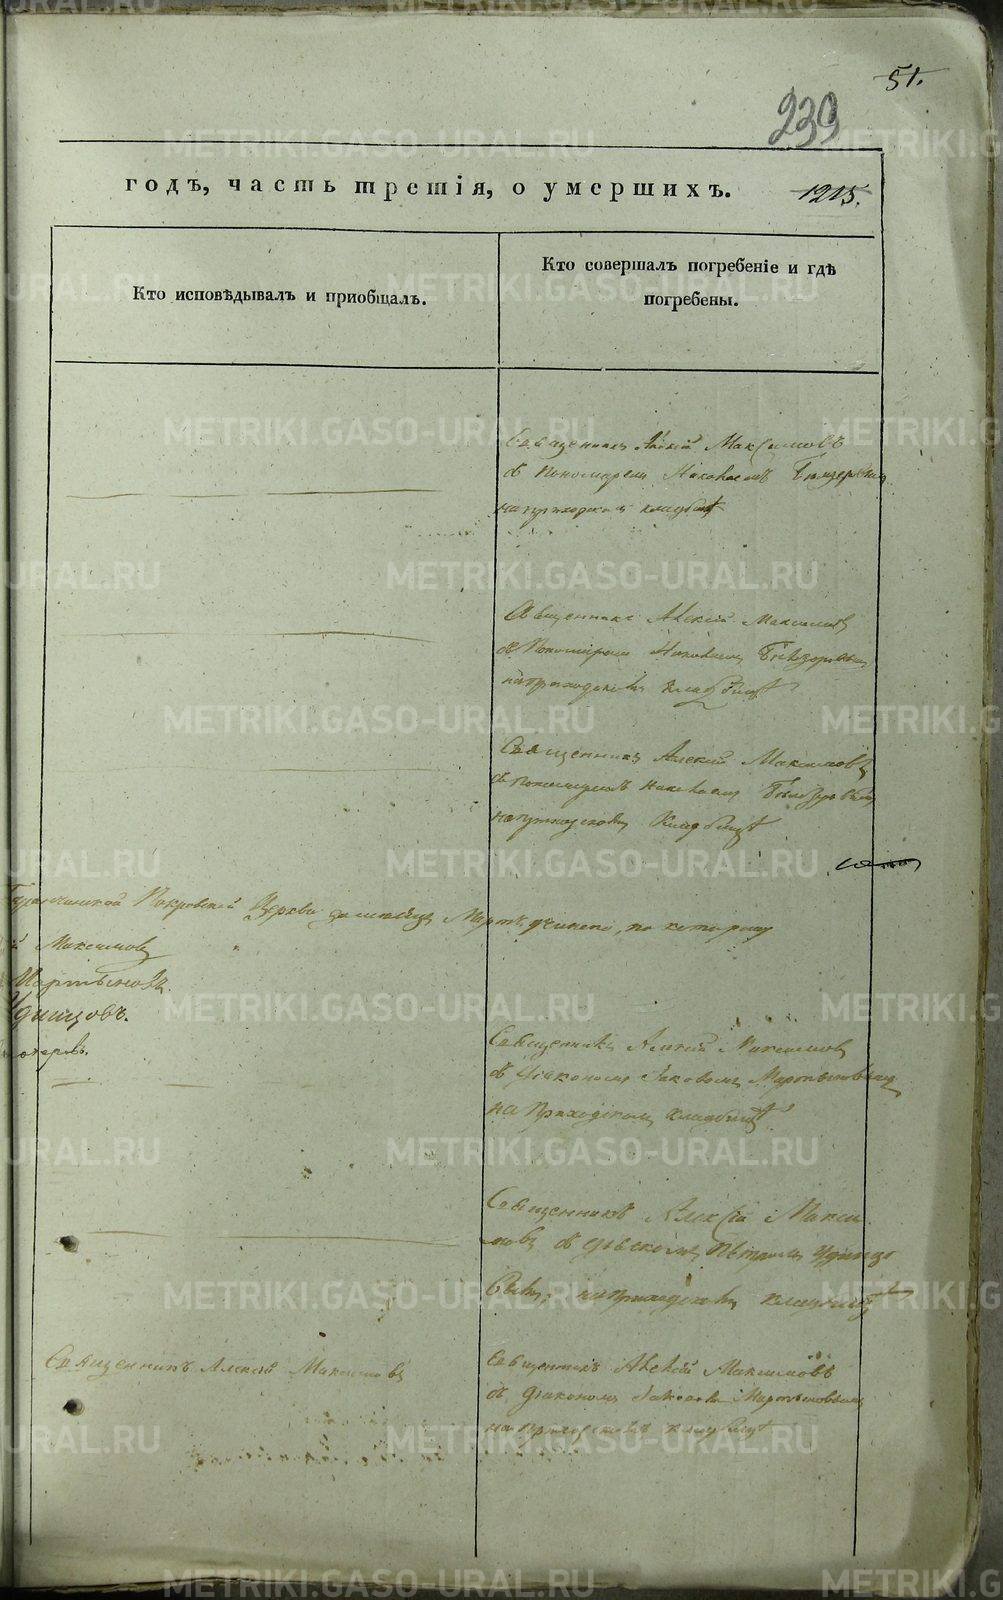 51.
239
годъ, часть третія, о умершихъ.
1215.
Кто исповѣдывалъ и пріобщалъ.
Кто совершалъ погребеніе и гдѣ
погребены.
Священникъ Алексій Максимовъ
съ Пономаремъ Николаемъ
на приходскомъ кладбищѣ
Священникъ Алексій Максимовъ
съ Пономаремъ Николаемъ
на приходскомъ кладбищѣ
Священникъ Алексій Максимовъ
съ Пономаремъ Николаемъ
на приходскомъ кладбищѣ
Покровской Церкви за мѣсяцъ Мартъ, по которому
й Максимовъ
Мартыновъ.
Удинцовъ.
Священникъ Алексій Максимовъ
съ Діакономъ Іаковомъ Мартыновымъ
на Приходскомъ кладбищѣ
Священникъ Алексій Макси
мовъ съ Петромъ Удинцо
вымъ, на приходскомъ кладбищѣ
Священникъ Алексій Максимовъ
Священникъ Алексій Максимовъ
съ Діакономъ Іаковомъ Мартыновымъ
на приходскомъ кладбищѣ
METRIKI.GASO-URAL.RU